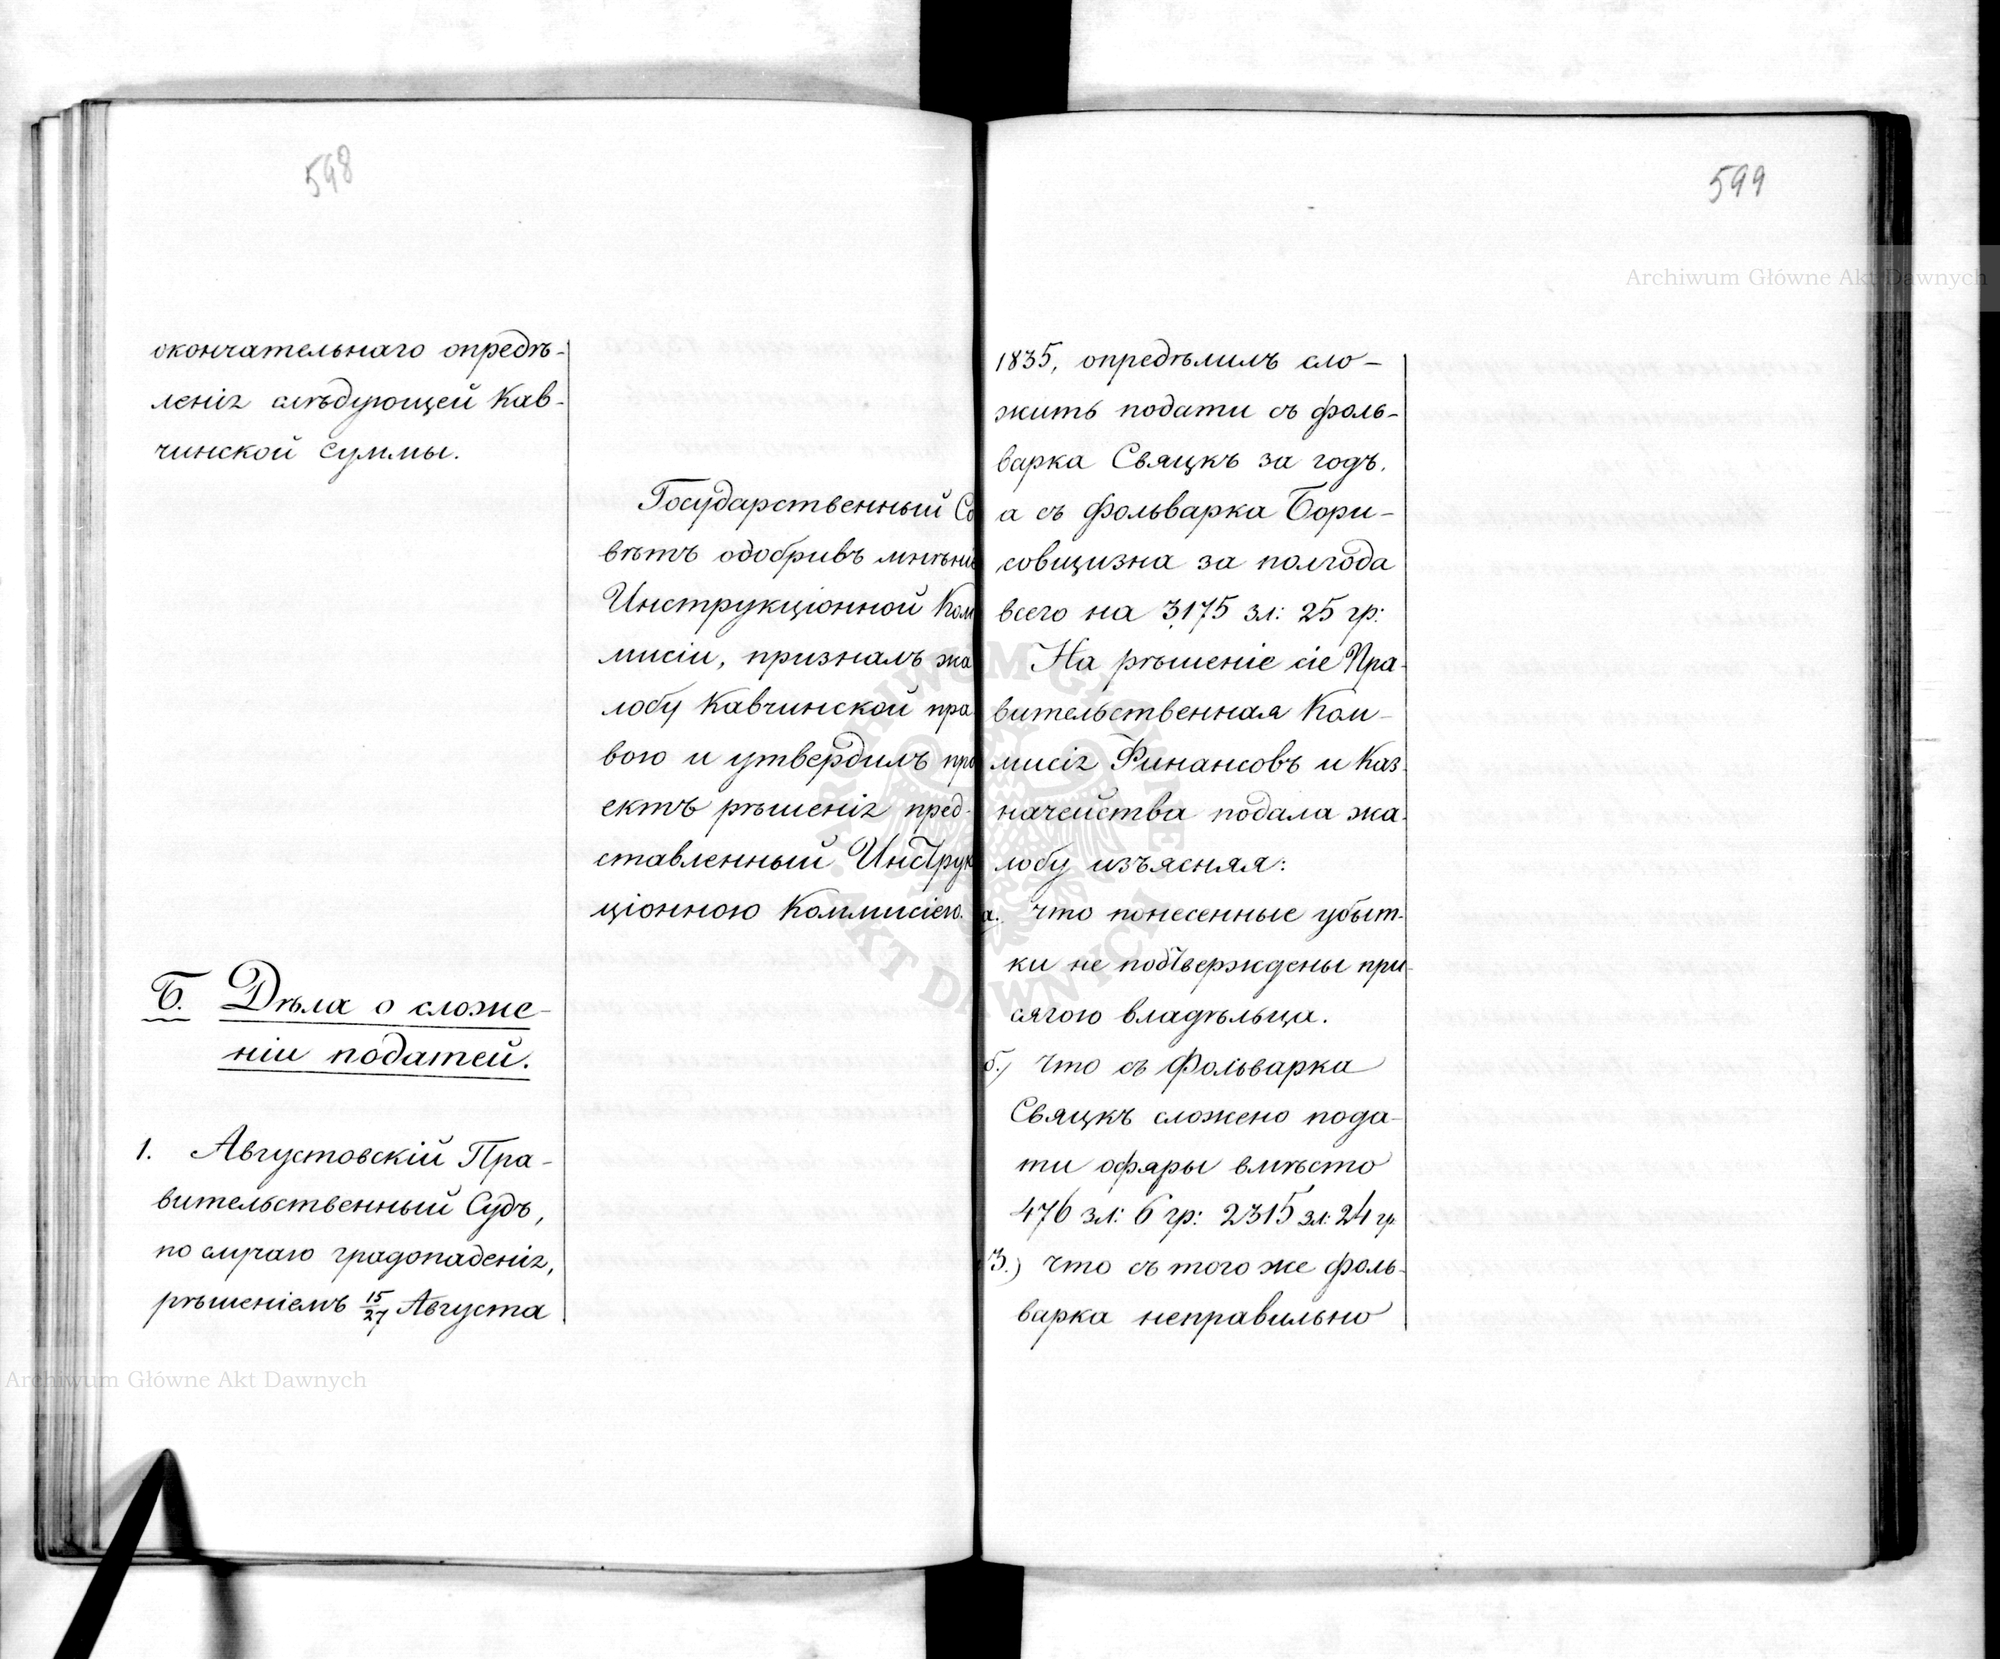 598
окончательнаго опредѣ-
ленія слѣдующей Кав-
чинской суммы.
Государственный Со
вѣтъ одобривъ мнѣніе
Инструкціонной Ком
мисіи, призналъ жа
лобу Кавчинской пра
вою и утвердилъ про
ектъ рѣшенія пред-
ставленный Инструк
ціонною Коммисіею.
Б. Дѣла о сложе-
ніи податей.
1. Августовскій Пра-
вительственный Судъ,
по случаю градопаденія,
рѣшеніемъ 15/27 Августа
599
1835, опредѣлилъ сло-
жить подати съ фоль-
варка Свяцкъ за годъ,
а съ фольварка Бори-
совщизна за полгода
всего на 3,175 зл: 25 гр:
На рѣшеніе сіе Пра-
вительственная Ком-
мисія Финансовъ и Каз-
начейства подала жа-
лобу изъясняя:
а. что понесенные убыт-
ки не подтверждены при-
сягою владѣльца.
б.) что съ фольварка
Свяцкъ сложено пода-
ти офяры вмѣсто
476 зл: 6 гр: 2315 зл: 24 гр
3.) что съ того же фоль-
варка неправильно
Archiwum Główne Akt Dawnych
Archiwum Główne Akt Dawnych
ARCHIWUM GŁÓWNE AKT DAWNYCH